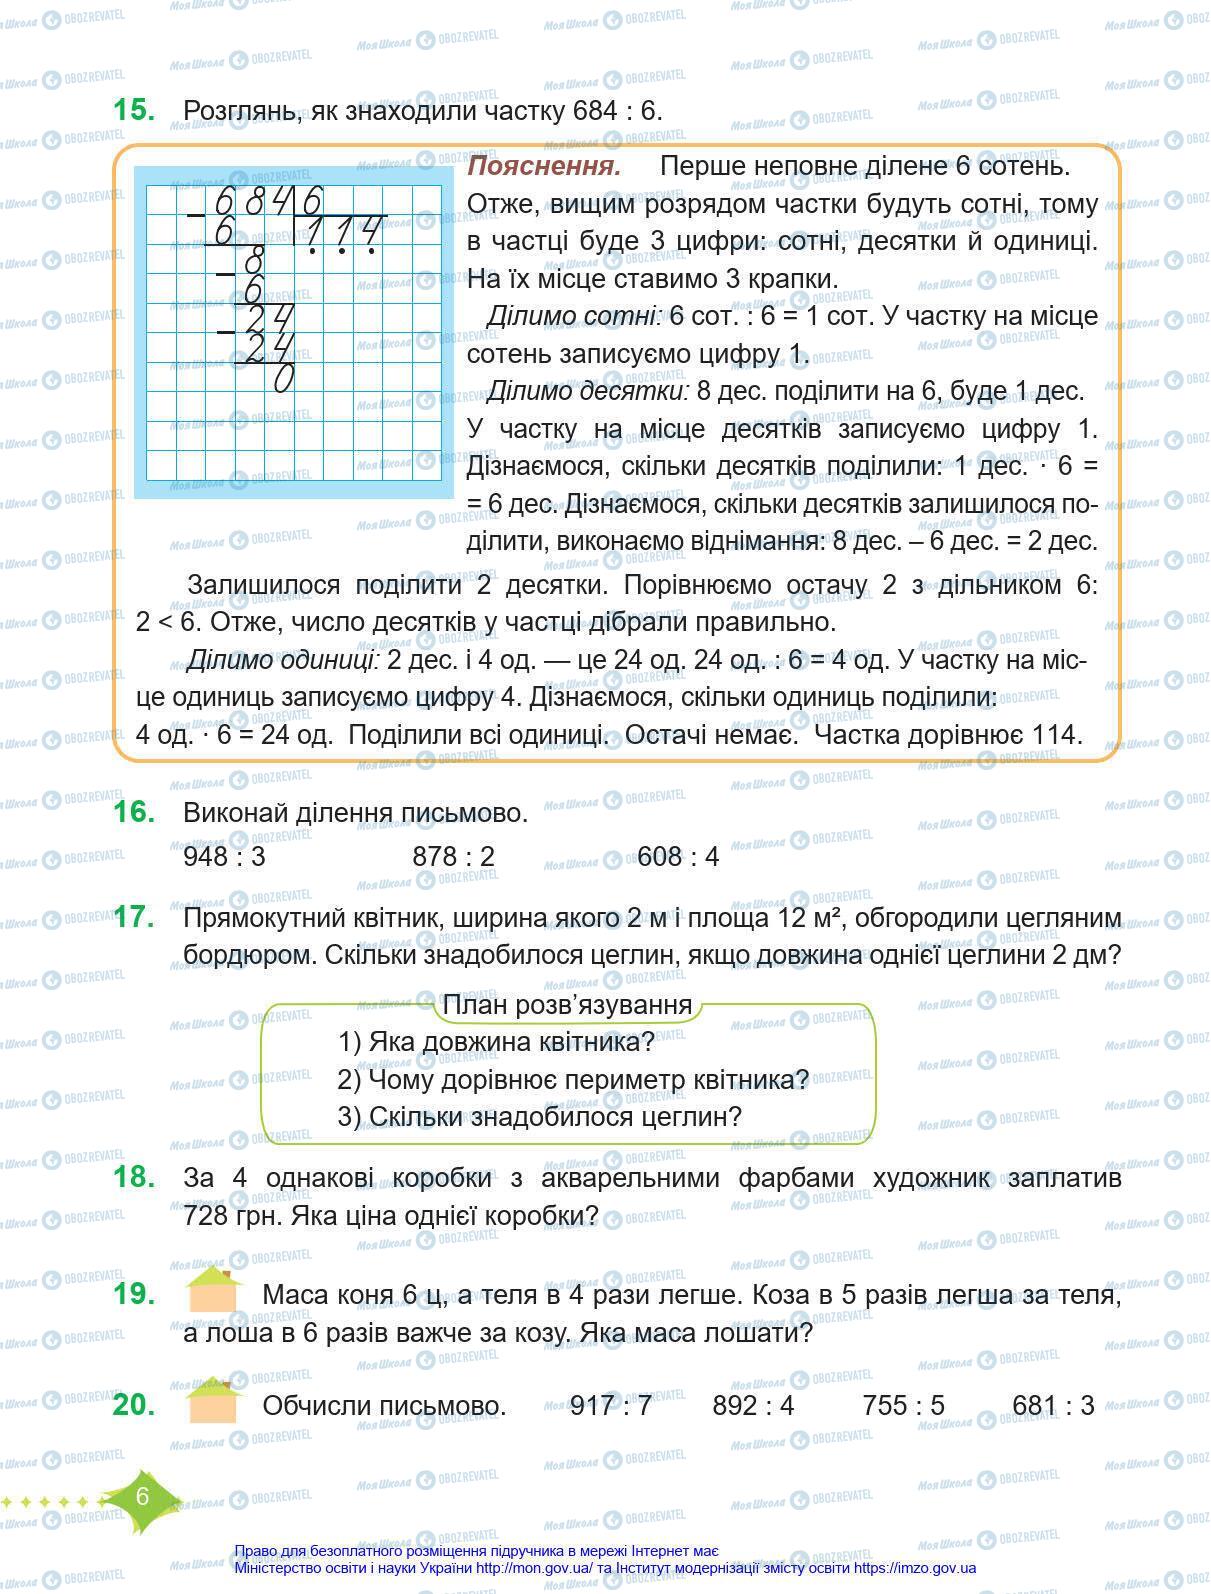 15. Розглянь, як знаходили частку 684 : 6.
Пояснення. Перше неповне ділене 6 сотень.
Отже, вищим розрядом частки будуть сотні, тому
в частці буде 3 цифри: сотні, десятки й одиниці.
На їх місце ставимо 3 крапки.
Ділимо сотні: 6 сот. : 6 = 1 сот. У частку на місце
сотень записуємо цифру 1.
Ділимо десятки: 8 дес. поділити на 6, буде 1 дес.
У частку на місце десятків записуємо цифру 1.
Дізнаємося, скільки десятків поділили: 1 дес. · 6 =
= 6 дес. Дізнаємося, скільки десятків залишилося по-
ділити, виконаємо віднімання: 8 дес. – 6 дес. = 2 дес.
684 6
– 6 114
8
– 6
24
– 24
0
Залишилося поділити 2 десятки. Порівнюємо остачу 2 з дільником 6:
2 < 6. Отже, число десятків у частці дібрали правильно.
Ділимо одиниці: 2 дес. і 4 од. — це 24 од. 24 од. : 6 = 4 од. У частку на міс-
це одиниць записуємо цифру 4. Дізнаємося, скільки одиниць поділили:
4 од. · 6 = 24 од. Поділили всі одиниці. Остачі немає. Частка дорівнює 114.
16. Виконай ділення письмово.
948 : 3 878 : 2 608 : 4
17. Прямокутний квітник, ширина якого 2 м і площа 12 м², обгородили цегляним
бордюром. Скільки знадобилося цеглин, якщо довжина однієї цеглини 2 дм?
План розв’язування
1) Яка довжина квітника?
2) Чому дорівнює периметр квітника?
3) Скільки знадобилося цеглин?
18. За 4 однакові коробки з акварельними фарбами художник заплатив
728 грн. Яка ціна однієї коробки?
19. Маса коня 6 ц, а теля в 4 рази легше. Коза в 5 разів легша за теля,
а лоша в 6 разів важче за козу. Яка маса лошати?
20. Обчисли письмово. 917 : 7 892 : 4 755 : 5 681 : 3
6
Право для безоплатного розміщення підручника в мережі Інтернет має
Міністерство освіти і науки України http://mon.gov.ua/ та Інститут модернізації змісту освіти https://imzo.gov.ua
МояШкола OBOZREVATEL